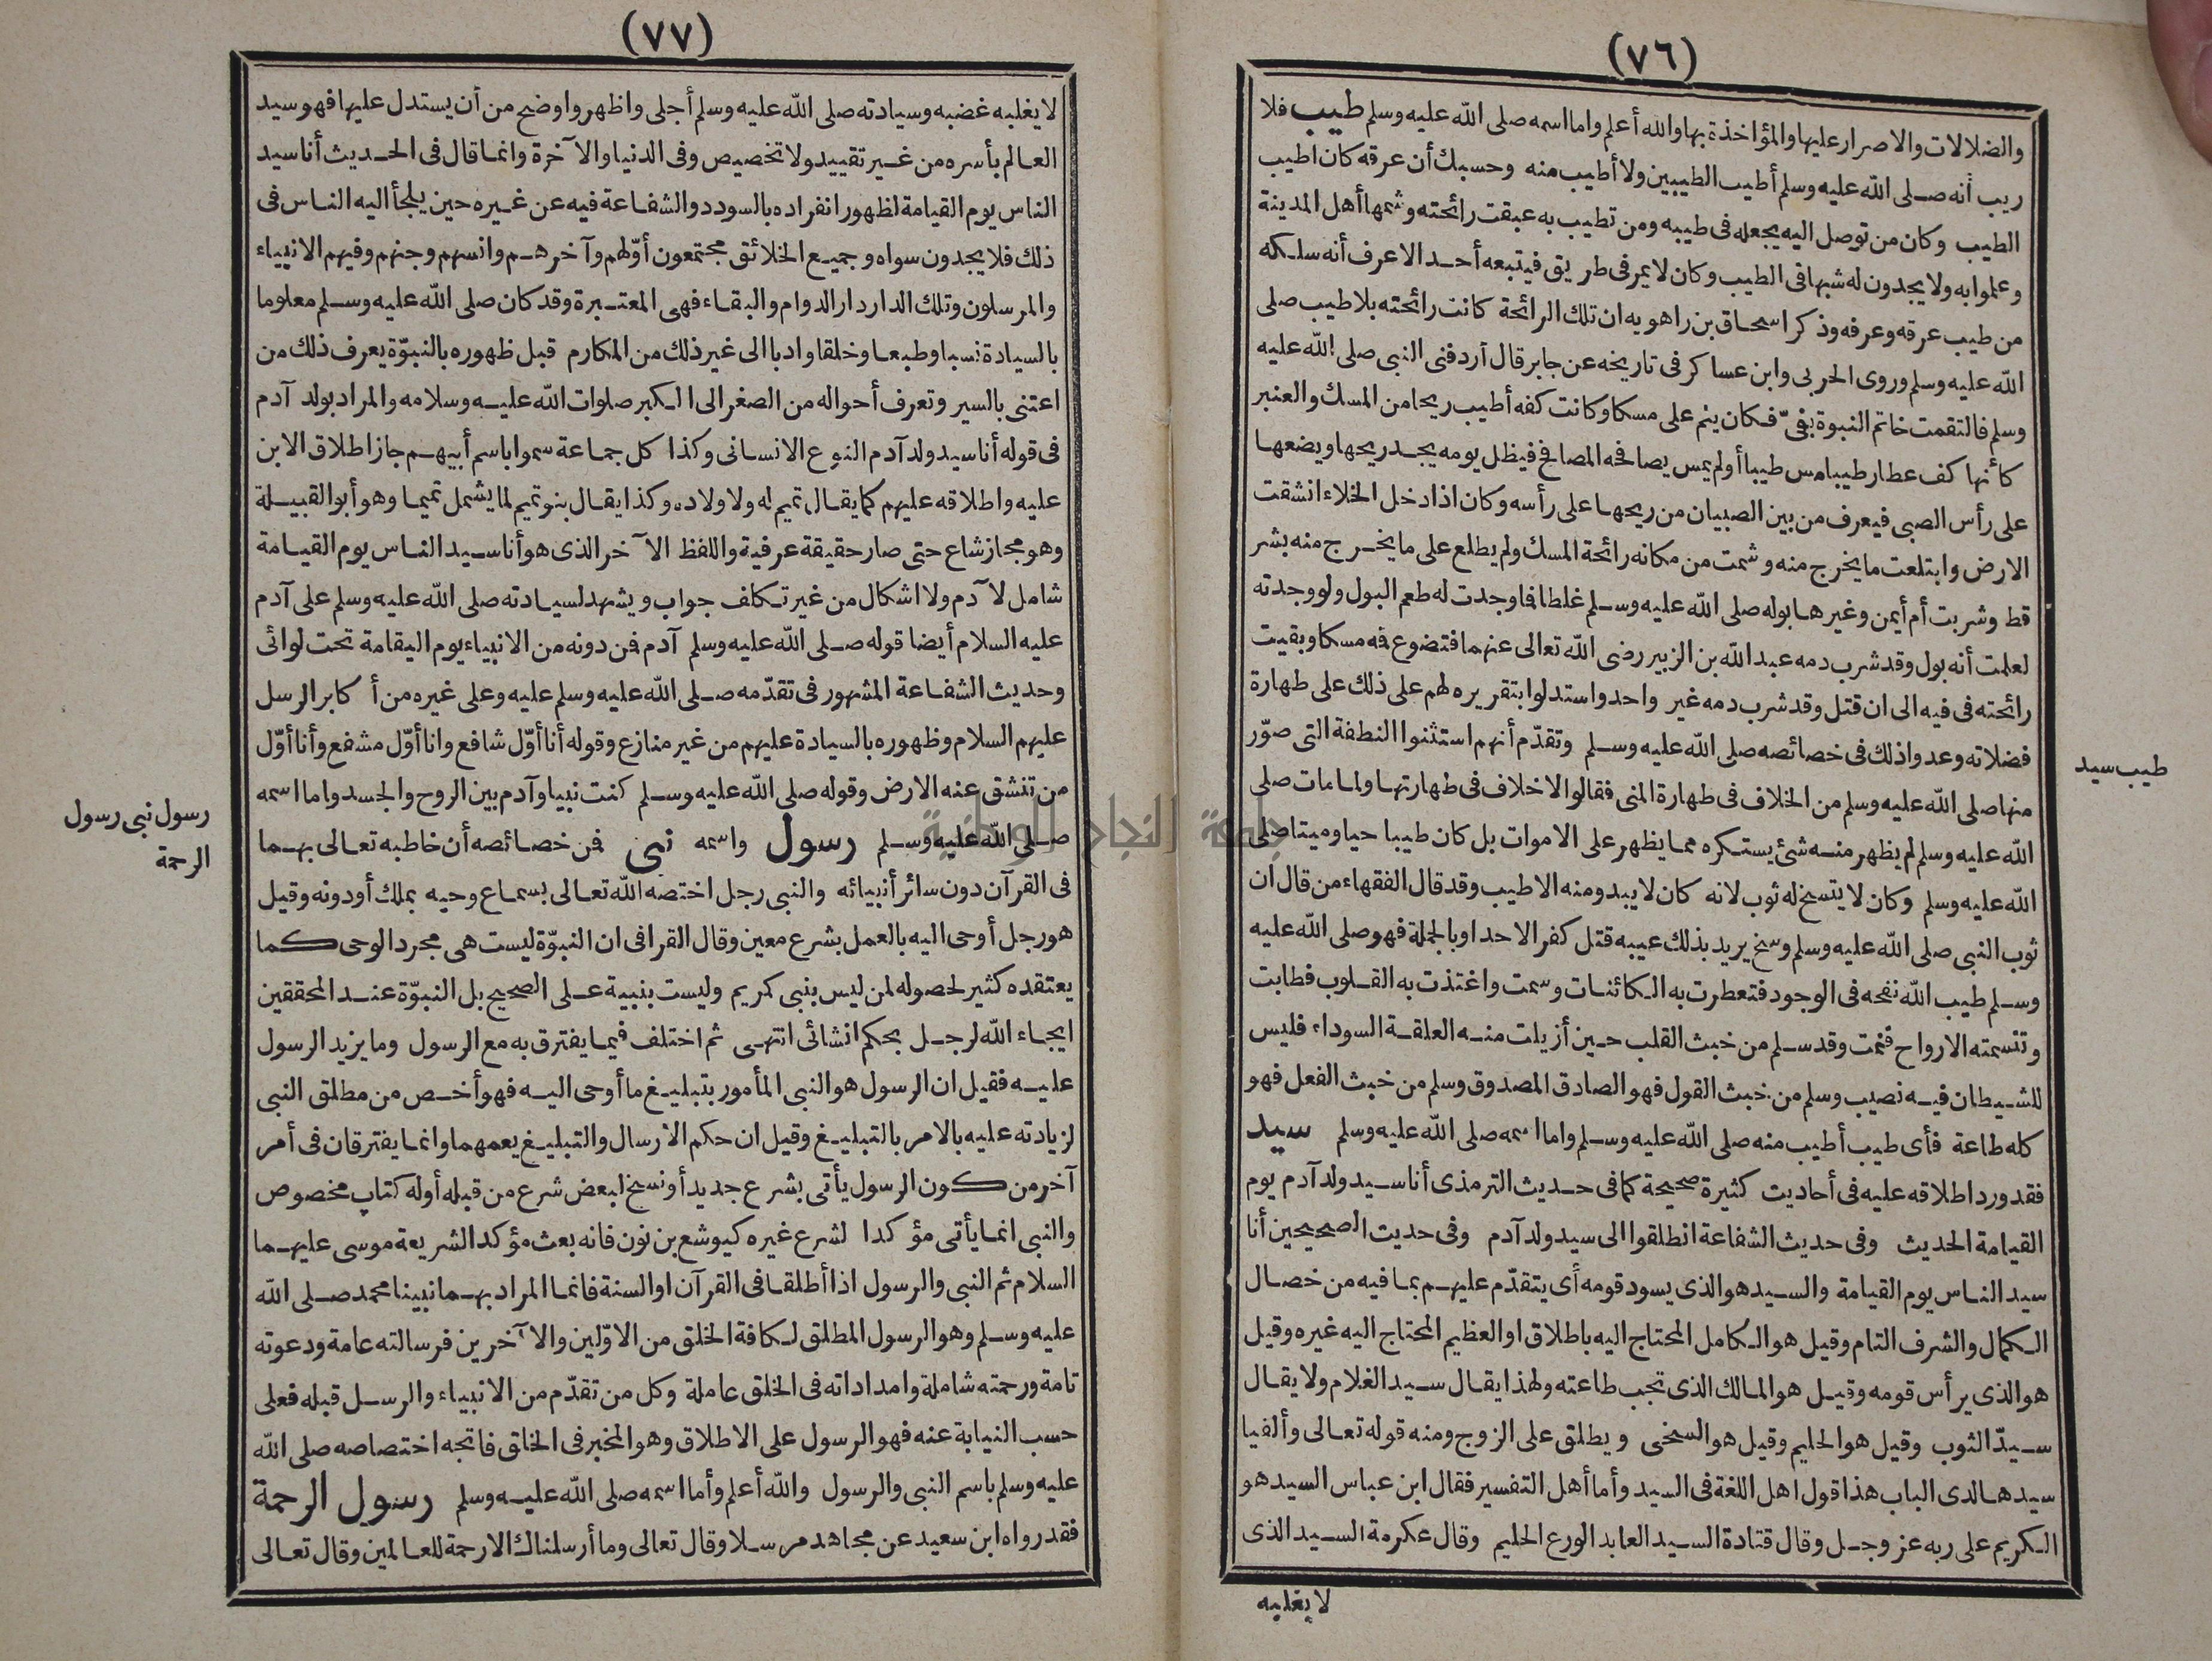 (٧٦)
والضلالات والاصرار عليها والمؤاخذة بها والله أعلم واما اسمه صلى الله عليه وسلم طيب فلا
ريب أنه صلى الله عليه وسلم أطيب الطيبين ولا أطيب منه وحسبك أن عرقه كان اطيب
الطيب وكان من توصل اليه يجعله فى طيبه ومن تطيب به عبقت رائحته وشمها أهل المدينة
وعلموا به ولا يجدون له شبها فى الطيب وكان لا يمر فى طريق فيتبعه أحد الا عرف أنه سلكه
من طيب عرقه وعرفه وذكر اسحاق بن راهويه ان تلك الرائحة كانت رائحته بلا طيب صلى
الله عليه وسلم وروى الحربى وابن عساكر فى تاريخه عن جابر قال أردفنى النبى صلى الله عليه
وسلم فالتقمت خاتم النبوة بفىّ فكان ينم على مسكا وكانت كفه أطيب ريحا من المسك والعنبر
كأنها كف عطار طيبا مس طيبا أو لم يمس يصافحه المصافح فيظل يومه يجد ريحها ويضعها
على رأس الصبى فيعرف من بين الصبيان من ريحها على رأسه وكان اذا دخل الخلاء انشقت
الارض وابتلعت ما يخرج منه وشمت من مكانه رائحة المسك ولم يطلع على ما يخرج منه بشر
قط وشربت أم أيمن وغيرها بوله صلى الله عليه وسلم غلطا فما وجدت له طعم البول ولو وجدته
لعلمت أنه بول وقد شرب دمه عبد الله بن الزبير رضى الله تعالى عنهما فتضوع فمه مسكا وبقيت
رائحته فى فيه الى ان قتل وقد شرب دمه غير واحد واستدلوا بتقريره لهم على ذلك على طهارة
فضلاته وعدوا ذلك فى خصائصه صلى الله عليه وسلم وتقدّم أنهم استثنوا النطفة التى صوّر
منها صلى الله عليه وسلم من الخلاف فى طهارة المنى فقالوا لا خلاف فى طهارتها ولما مات صلى
الله عليه وسلم لم يظهر منه شئ يستكره مما يظهر على الاموات بل كان طيبا حيا وميتا صلى
الله عليه وسلم وكان لا يتسخ له ثوب لانه كان لا يبدو منه الا طيب وقد قال الفقهاء من قال ان
ثوب النبى صلى الله عليه وسلم وسخ يريد بذلك عيبه قتل كفرا لاحدا وبالجملة فهو صلى الله عليه
وسلم طيب الله نفحه فى الوجود فتعطرت به الكائنات وسمت واغتذت به القلوب فطابت
وتنسمته الارواح فنمت وقد سلم من خبث القلب حين أزيلت منه العلقة السوداء فليس
للشيطان فيه نصيب وسلم من خبث القول فهو الصادق المصدوق وسلم من خبث الفعل فهو
كله طاعة فأى طيب أطيب منه صلى الله عليه وسلم واما اسمه صلى الله عليه وسلم سيد
فقد ورد اطلاقه عليه فى أحاديث كثيرة صحيحة كما فى حديث الترمذى أنا سيد ولد آدم يوم
القيامة الحديث وفى حديث الشفاعة انطلقوا الى سيد ولد آدم وفى حديث الصحيحين أنا
سيد الناس يوم القيامة والسيد هو الذى يسود قومه أى يتقدّم عليهم بما فيه من خصال
الكمال والشرف التام وقيل هو الكامل المحتاج اليه باطلاق او العظيم المحتاج اليه غيره وقيل
هو الذى يرأس قومه وقيل هو المالك الذى تجب طاعته ولهذا يقال سيد الغلام ولا يقال
سيدّ الثوب وقيل هو الحليم وقيل هو السخى ويطلق على الزوج ومنه قوله تعالى وألفيا
سيدها لدى الباب هذا قول اهل اللغة فى السيد وأما أهل التفسير فقال ابن عباس السيد هو
الكريم على ربه عز وجل وقال قتادة السيد العابد الورع الحليم وقال عكرمة السيد الذى
لا يغلبه
طيب سيد
(٧٧)
لا يغلبه غضبه وسيادته صلى الله عليه وسلم أجلى واظهر واوضح من أن يستدل عليها فهو سيد
العالم بأسره من غير تقييد ولا تخصيص وفى الدنيا والآخرة وانما قال فى الحديث أنا سيد
الناس يوم القيامة لظهور انفراده بالسودد والشفاعة فيه عن غيره حين يلجأ اليه الناس فى
ذلك فلا يجدون سواه وجميع الخلائق مجتمعون أوّلهم وآخرهم وانسهم وجنهم وفيهم الانبياء
والمرسلون وتلك الدار دار الدوام والبقاء فهى المعتبرة وقد كان صلى الله عليه وسلم معلوما
بالسيادة نسبا وطبعا وخلقا وادبا الى غير ذلك من المكارم قبل ظهوره بالنبوّة يعرف ذلك من
اعتنى بالسير وتعرف أحواله من الصغر الى الكبر صلوات الله عليه وسلامه والمراد بولد آدم
فى قوله أنا سيد ولد آدم النوع الانسانى وكذا كل جماعة سموا باسم أبيهم جاز اطلاق الابن
عليه واطلاقه عليهم كما يقال تميم له ولاولاده وكذا يقال بنو تميم لما يشمل تميما وهو أبو القبيلة
وهو مجاز شاع حتى صار حقيقة عرفية واللفظ الآخر الذى هو أنا سيد الناس يوم القيامة
شامل لآدم ولا اشكال من غير تكلف جواب ويشهد لسيادته صلى الله عليه وسلم على آدم
عليه السلام أيضا قوله صلى الله عليه وسلم آدم فمن دونه من الانبياء يوم اليقامة تحت لوائى
وحديث الشفاعة المشهور فى تقدّمه صلى الله عليه وسلم عليه وعلى غيره من أكابر الرسل
عليهم السلام وظهوره بالسيادة عليهم من غير منازع وقوله أنا أوّل شافع وانا أوّل مشفع وأنا أوّل
من تنشق عنه الارض وقوله صلى الله عليه وسلم كنت نبيا وآدم بين الروح والجسد واما اسمه
صلى الله عليه وسلم رسول واسمه نبى فمن خصائصه أن خاطبه تعالى بهما
فى القرآن دون سائر أنبيائه والنبى رجل اختصه الله تعالى بسماع وحيه بملك أو دونه وقيل
هو رجل أوحى اليه بالعمل بشرع معين وقال القرافى ان النبوّة ليست هى مجرد الوحى كما
يعتقده كثير لحصوله لمن ليس بنبى كمريم وليست بنبية على الصحيح بل النبوّة عند المحققين
ايحاء الله لرجل بحكم انشائى انتهى ثم اختلف فيما يفترق به مع الرسول وما يزيد الرسول
عليه فقيل ان الرسول هو النبى المأمور بتبليغ ما أوحى اليه فهو أخص من مطلق النبى
لزيادته عليه بالامر بالتبليغ وقيل ان حكم الارسال والتبليغ يعمهما وانما يفترقان فى أمر
آخر من كون الرسول يأتى بشرع جديد أو نسخ لبعض شرع من قبله أوله كتاب مخصوص
والنبى انما يأتى مؤكدا لشرع غيره كيوشع بن نون فانه بعث مؤكدا لشريعة موسى عليهما
السلام ثم النبى والرسول اذا أطلقا فى القرآن او السنة فانما المراد بهما نبينا محمد صلى الله
عليه وسلم وهو الرسول المطلق لكافة الخلق من الاوّلين والآخرين فرسالته عامة ودعوته
تامة ورحمته شاملة وامداداته فى الخلق عاملة وكل من تقدّم من الانبياء والرسل قبله فعلى
حسب النيابة عنه فهو الرسول على الاطلاق وهو المخبر فى الخلق فاتجه اختصاصه صلى الله
عليه وسلم باسم النبى والرسول والله أعلم وأما اسمه صلى الله عليه وسلم رسول الرحمة
فقد رواه ابن سعيد عن مجاهد مرسلا وقال تعالى وما أرسلناك الا رحمة للعالمين وقال تعالى
رسول نبى رسول
الرحمة
جامعة النجاح الوطنية